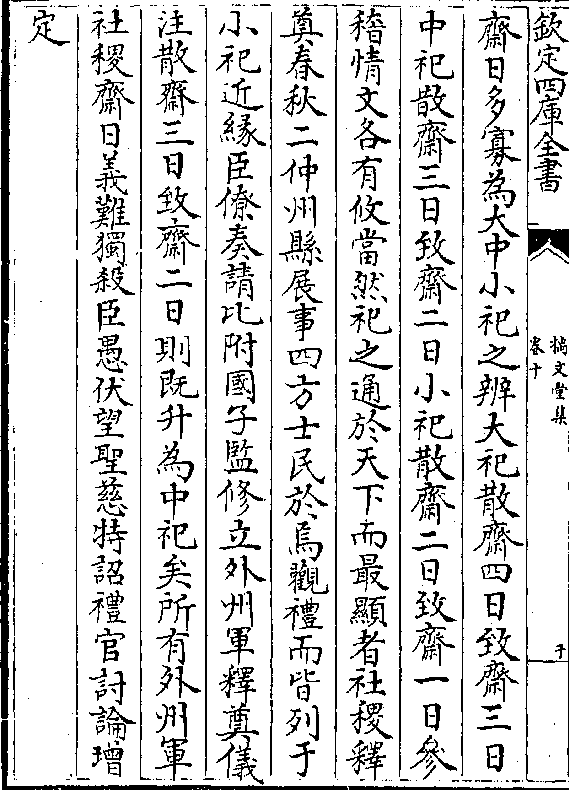 欽定四庫全書
摛文堂集
卷十
齋日多寡為大中小祀之辨大祀散齋四日致齋三日
中祀散齋三日致齋二日小祀散齋二日致齋一日參
稽情文各有攸當然祀之通於天下而最顯者社稷釋
奠春秋二仲州縣展事四方士民於焉觀禮而皆列于
小祀近緣臣僚奏請比附國子監修立外州軍釋奠儀
注散齋三日致齋二日則既升為中祀矣所有外州軍
社稷齋日義難獨殺臣愚伏望聖慈特詔禮官討論增
定